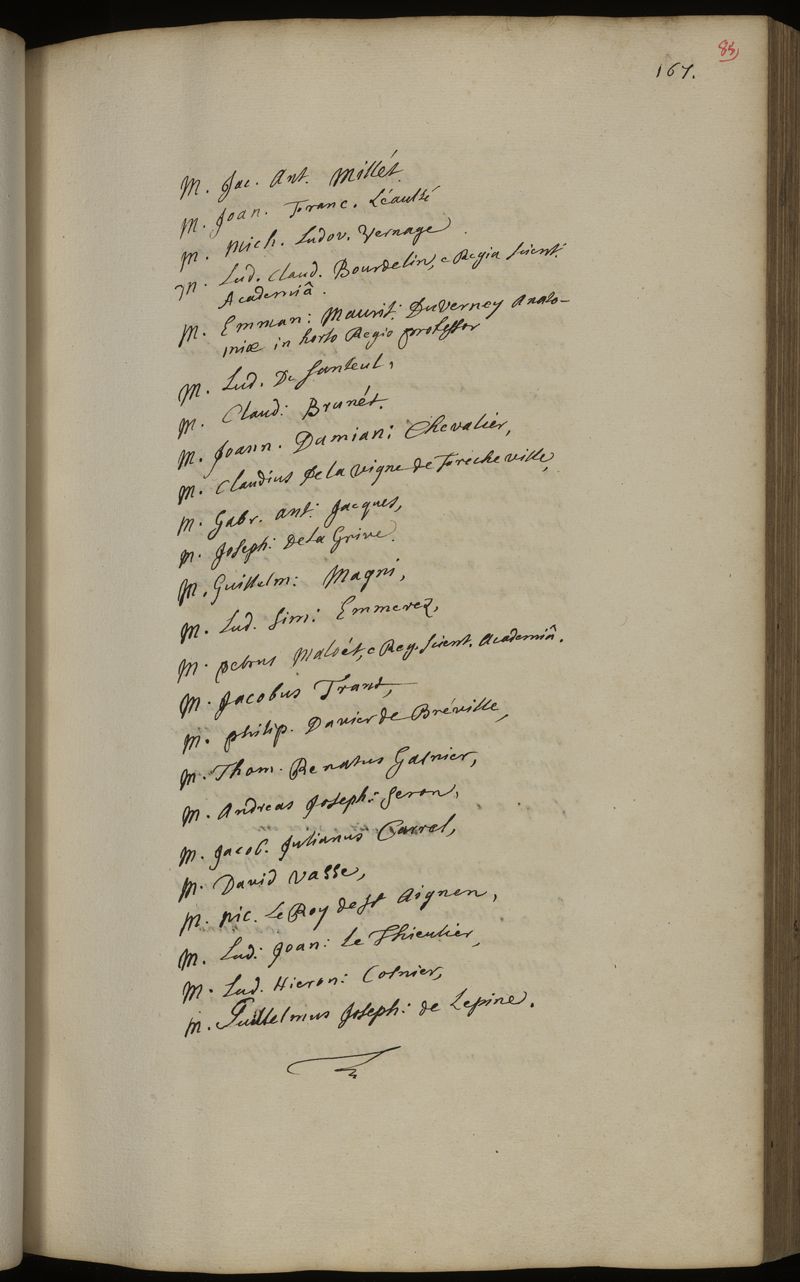 85
167.
M. Jac. Ant. Millét.
M. Joan. Franc. Léaulté
M. Mich. Ludov. Vernage.
M. Lud. Claud. Bourdelin, e Regia Scient.
Academiâ.
M. Emman: Maurit: DuVerney Anato-
miæ in horto Regio professor
M. Lud. De Santeul,
M. Claud: Brunét.
M. Joann. Damian: Chevalier,
M. Claudius De la vigne de Frecheville,
M. Gabr. Ant. Jacques,
M. Joseph: De La Grive.
M. Guillelm: Magni,
M. Lud. Sim: Emmerez,
M. petrus Maloét, e Reg. Scient. Academiâ.
M. Jacobus Trant,
M. philip. Davier de Bréville,
M. Thom. Renatus Gasnier,
M. Andreas Joseph: Seron,
M. Jacob. Julianus Carrel,
M. David Vasse,
M. Nic. Le Roy de St Aignen,
M. Lud: Joan: Le Thieulier,
M. Lud. Hieron: Cosnier,
M. Guillelmus Joseph: de Lepine.